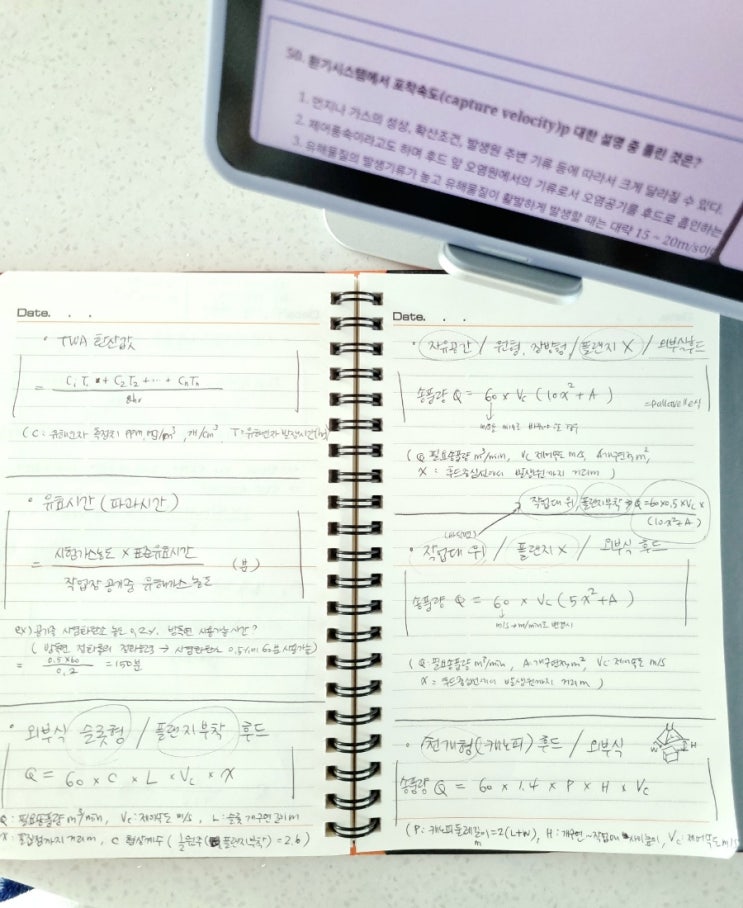 50. 환기시스템에서 포착속도(capture velocity)p 대한 설명 중 틀린 것은?
1. 먼지나 가스의 성상, 확산조건, 발생원 주변 기류 등에 따라서 크게 달라질 수 있다.
2. 제어풍속이라고도 하며 후드 앞 오염원에서의 기류로서 오염공기를 후드로 흡인하는
3. 유해물질의 발생기류가 높고 유해물질이 활발하게 발생할 때는 대략 15 ~ 20m/s이
Date. . .
• TWA 환산값
= C₁T₁ + C₂T₂ + ... + CₙTₙ
8hr
(C: 유해인자 측정치 ppm, mg/m³, 개/cm³ T: 유해인자 발생시간(hr)
• 유효시간 (파과시간)
= 시험가스농도 × 표준유효시간
작업장 공기중 유해가스 농도
(분)
ex) 공기중 사염화탄소 농도 0.2%. 방독면 사용가능시간?
( 방독면 정화통의 정화능력 → 사염화탄소 0.5%에 60분 사용가능)
= 0.5×60
0.2
= 150분
• 외부식 슬롯형 / 플랜지부착 후드
Q = 60 × C × L × Vc × X
Q: 필요송풍량 m³/min, Vc: 제어속도 m/s, L: 슬롯 개구면 길이 m
X: 포집점까지 거리 m, C 형상계수 ( 플랜지부착) = 2.6)
Date. . .
• 자유공간 / 원형, 장방형 / 플랜지 X / 외부식후드
송풍량 Q = 60 × Vc (10X² + A)
(Q 필요송풍량 m³/min, Vc 제어속도 m/s, A 개구면적 m²,
X : 후드중심선에서 발생원까지 거리 m)
작업대 위, 플랜지부착 → Q = 60×0.5×Vc×
(10X²+A)
• 작업대 위 / 플랜지 X / 외부식 후드
송풍량 Q = 60 × Vc (5X² + A)
m/s → m/min로 변경시
(Q 필요송풍량 m³/min, A 개구면적 m², Vc 제어속도 m/s
X = 후드중심선에서 발생원까지 거리 m )
• 천개형(캐노피) 후드 / 외부식
W H
송풍량 Q = 60 × 1.4 × P × H × Vc
(P: 캐노피 둘레길이 = 2(L+W), H: 개구면~작업대 사이 높이, Vc 제어속도 m/s
m